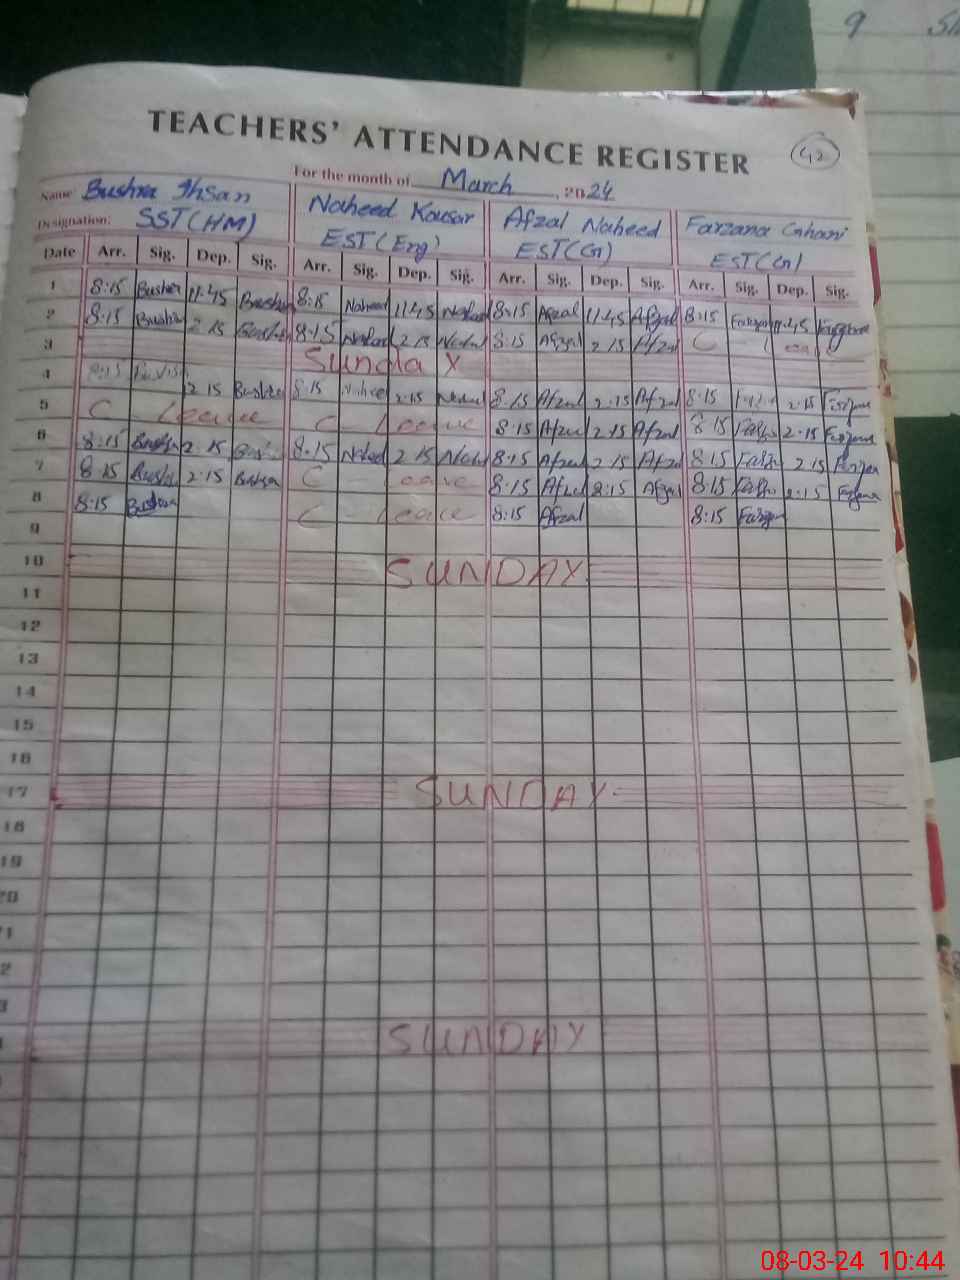 9
TEACHERS' ATTENDANCE REGISTER
42
For the month of March, 2024
Name Bushra Ihsan Naheed Kousar Afzal Naheed Farzana Ghani
Designation: SST(HM) EST(Eng) EST(G) EST(G)
Date Arr. Sig. Dep. Sig. Arr. Sig. Dep. Sig. Arr. Sig. Dep. Sig. Arr. Sig. Dep. Sig.
1 8:15 Bushra 11:45 Bushra 8:15 Naheed 11:45 Naheed 8:15 Afzal 11:45 Afzal 8:15 Farzana 11:45 Farzana
2 8:15 Bushra 2:15 Bushra 8:15 Naheed 2:15 Naheed 8:15 Afzal 2:15 Afzal C - Leave
3 Sunday
4 2:15 Bushra 8:15 Naheed 2:15 Naheed 8:15 Afzal 2:15 Afzal 8:15 2:15 Farzana
5 C - Leave C - Leave 8:15 Afzal 2:15 Afzal 8:15 Farzana 2:15 Farzana
6 8:15 Bushra 2:15 8:15 Naheed 2:15 Naheed 8:15 Afzal 2:15 Afzal 8:15 Farzana 2:15 Farzana
7 8:15 Bushra 2:15 Bushra C - Leave 8:15 Afzal 2:15 Afzal 8:15 Farzana 2:15 Farzana
8 8:15 Bushra C - Leave 8:15 Afzal 8:15 Farzana
9
10 SUNDAY
11
12
13
14
15
16
17 SUNDAY
18
19
20
SUNDAY
08-03-24 10:44